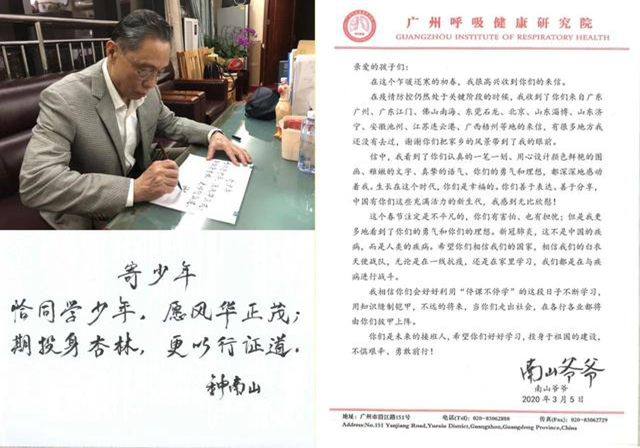 寄少年
恰同学少年，愿风华正茂；
期投身杏林，更以行证道。
钟南山
广州呼吸健康研究院
GUANGZHOU INSTITUTE OF RESPIRATORY HEALTH
亲爱的孩子们：
在这个乍暖还寒的初春，我很高兴收到你们的来信。
在疫情防控仍然处于关键阶段的时候，我收到了你们来自广东
广州、广东江门、佛山南海、东莞石龙、北京、山东淄博、山东济
宁、安徽池州、江苏连云港、广西梧州等地的来信，有很多地方我
还没有去过，谢谢你们把家乡的风景带到了我的眼前。
信中，我看到了你们认真的一笔一划、用心设计颜色鲜艳的图
画、稚嫩的文字、真挚的语气、你们的勇气和理想，都深深地感动
着我。生长在这个时代，你们是幸福的。你们善于表达、善于分享，
中国有你们这些充满活力的新生代，我感到无比欣慰！
这个春节注定是不平凡的，你们有害怕，也有担忧；但是我更
多地看到了你们的勇气和你们的理想。新冠肺炎，这不是中国的疾
病，而是人类的疾病。希望你们相信我们的国家，相信我们的白衣
天使战队，无论是在一线抗疫，还是在家里学习，我们都是在与疾
病进行战斗。
我相信你们会好好利用“停课不停学”的这段日子不断学习，
用知识缝制铠甲，不远的将来，当你们走出社会，在各行各业都将
由你们披甲上阵。
你们是未来的接班人，希望你们好好学习，投身于祖国的建设，
不惧艰辛、勇敢前行！
南山爷爷
南山爷爷
2020 年 3 月 5 日
地址:广州市沿江路151号 电话(Tel): 020-83062888 传真(Fax): 020-83062729
Address:No.151 Yanjiang Road,Yuexiu District,Guangzhou,Guangdong Province,China